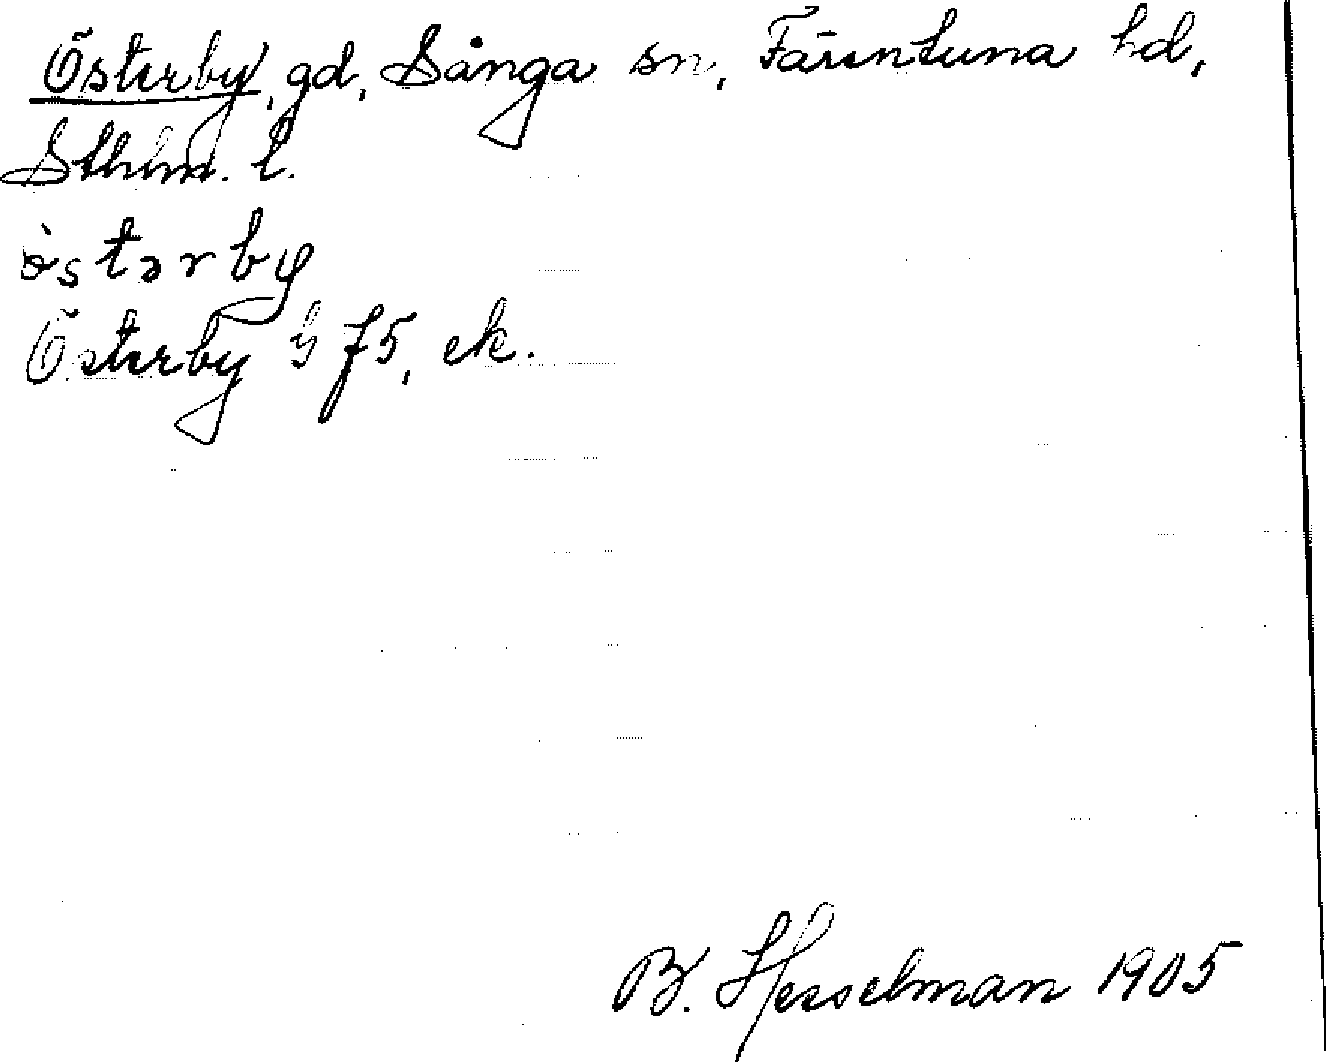 Österby, gd, Sånga sn, Färentuna hd,
Sthlm. l.
ò̀stərby
Österby G f5, ek.
B. Hesselman 1905